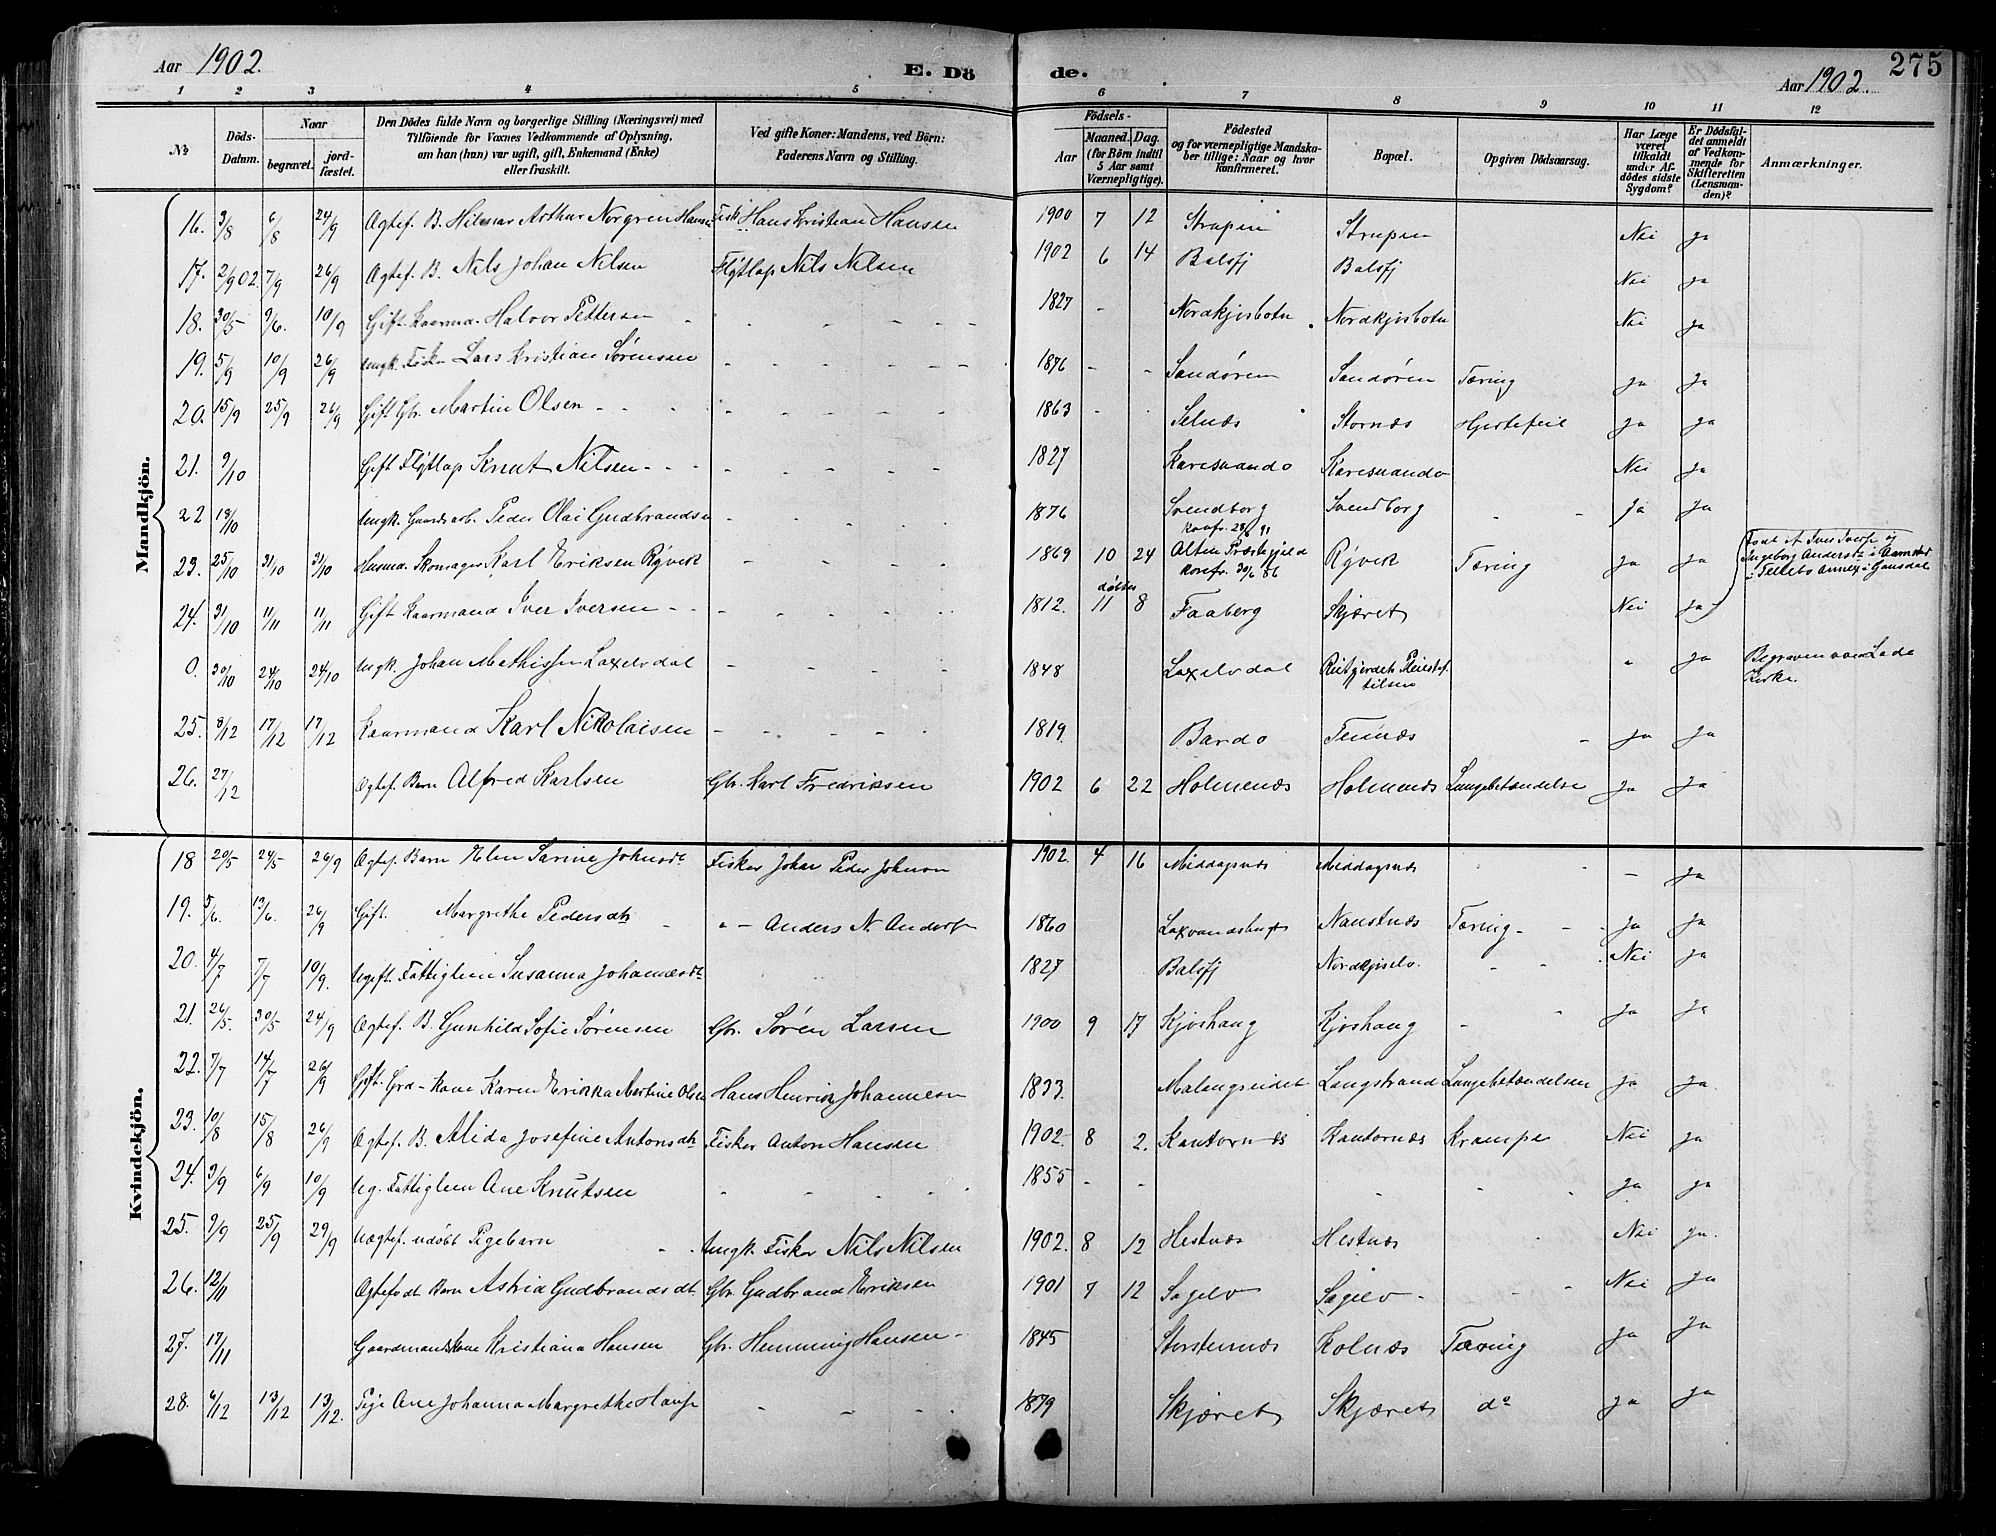 Aar 1902. E. Dö de. Aar 1902. 275
1 2 3 4 5 6 7 8 9 10 11 12
№ Döds-Datum. Naar begravet. jord-fæstet. Den Dödes fulde Navn og borgerlige Stilling (Næringsvei) med Tilföiende for Voxnes Vedkommende af Oplysning, om han (hun) var ugift, gift, Enkemand (Enke) eller fraskilt. Ved gifte Koner: Mandens, ved Börn: Faderens Navn og Stilling. Födsels- Aar Maaned. Dag. (for Börn indtil 5 Aar samt Værnepligtige). Födested og for værnepligtige Mandska-ber tillige: Naar og hvor konfirmeret. Bopæl. Opgiven Dödsaarsag. Har Læge været tilkaldt under Af-dödes sidste Sygdom? Er Dödsfal-det anmeldt af Vedkom-mende for Skifteretten (Lensman-den)? Anmærkninger.
Mandkjön.
16. 3/8 6/8 24/9 Ægtef. B. Hilmar Arthur Norgren Hansen Fisk. Hans Kristian Hansen 1900 7 12 Strupen Strupen Nei ja
17. 2/9 02 7/9 26/9 Ægtef. B. Nils Johan Nilsen Flytlap Nils Nilsen 1902 6 14 Balsfj Balsfj Nei ja
18. 30/5 9/6. 10/9 Gift. Kaarmd. Halvor Pettersen - - - - - 1827 - Nordkjosbotn Nordkjosbotn Nei ja
19. 5/9 10/9 26/9 Ungk. Fisker Lars Kristian Sørensen - - - - - 1876 - - Sandøren Sandøren Tæring ja ja
20. 15/9 25/9 26/9 Gift Gbr. Martin Olsen - - - - - - 1863 - - Selnæs Stornæs Hjertefeil ja ja
21. 9/10 Gift Flytlap Knut Nilsen - - - - - - 1827 Karesuando Karesuando Nei ja
22 18/10 Ungk. Gaardsarb. Peder Olai Gudbrandsen - - - 1876 Svendborg Svendborg - - ja ja
konfr. 28/6 91
23. 25/10 31/10 31/10 Husmd. Skomager Karl Eriksen Rÿvik - - - - 1869 10 24 Alten Præstegjeld Rÿvik Tæring ja ja
konfr. 30/6 86
24. 31/10 11/11 11/11 Gift Kaarmand Iver Iversen - - - - - - 1812. døbtes 11 8 Faaberg Skjæret Nei ja
Ingeborg Andersd. i Aamodt
i Annex i Gausdal
0. 30/10 24/10 24/10 Ungk. Johan Mathissen Laxelvdal - - - - 1848 Laxelvdal ja Begraven ved Lade
Kirke.
25. 8/12 17/12 17/12 Kaarmand Karl Nikolaisen - - - - 1819. Bardo Tennæs - ja ja
26. 27/12 Ægtef. Barn Alfred Karlsen Gbr. Karl Fredriksen 1902 6 22 Holmenæs Holmenæs Lungebetændelse ja ja
Kvindekjön.
18 20/5 24/5 26/9 Ægtef. Barn Elen Sarine Johnsdt Fisker Johan Peder Johnson 1902. 4 16 Middagsnæs Middagsnæs - ja
19. 5/6. 13/6. 26/9 Gift. Margrethe Pedersdtr - " - Anders N. Anders 1860 Laxvandsbugt Naustnæs Tæring - - ja ja
20. 4/7 7/7 10/9. Ugift. Fattiglem Susanna Johannesdt 1827 Balsfj Nordkjoselv. - - Nei ja
21. 26/5. 30/5 24/9 Ægtef. B. Gunhild Sofie Sørensen Gbr. Søren Larsen 1900 9 17 Kjoshaug Kjoshaug - ja ja
22. 7/7 14/7 26/9 Gift. Grd-kone Karen Erikka Martine Olsen Hans Henrik Johannesen 1833. Malangseidet Langstrand Lungebetændelsen ja ja.
23. 10/8 15/8 26/9 Ægtef. B. Alida Josefine Antonsdtr Fisker Anton Hansen 1902- 8 2. Kantornæs Kantornæs Krampe Nei ja
24. 3/9 6/9 10/9 Ug. Fattiglem Ane Knutsen - - - - 1855 - - - - ja ja
25. 9/9 25/9 29/9 Uægtef. udøbt Pigebarn Ungk. Fisker Nils Nilsen 1902. 8 12 Hestnæs Hestnæs Nei ja.
26. 12/11 Ægtefødt Barn Astrid Gudbrandsdt. Gbr. Gudbrand Eriksen 1901 7 12 Sagelv Sagelv - - - Nei ja
27. 17/11 Gaardmandskone Kristiana Hansen Gbr. Hemming Hansen - 1845 Storstennæs Kolnæs Tæring ja ja
28. 6/12 13/12 13/12. Pige Ane Johanna Margrethe Hans - - - 1879 Skjæret Skjæret do ja ja